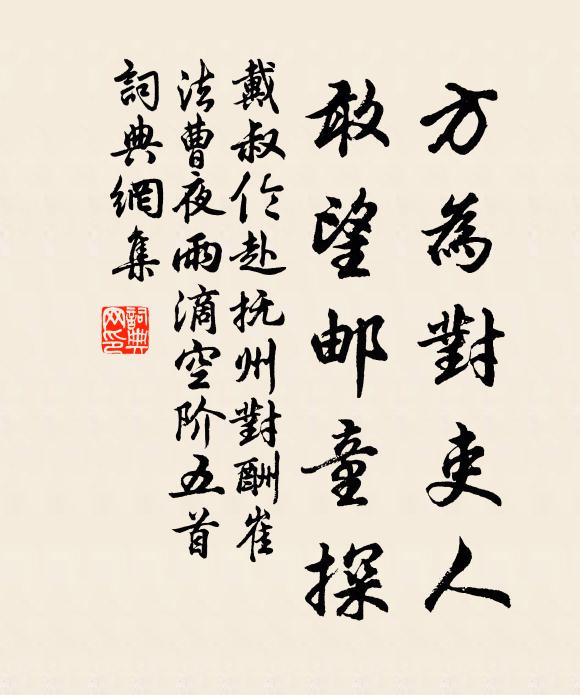 方為對吏人
敢望邮童探
戴叔伦赴抚州對酬崔
法曹夜雨滴空阶五首
詞典網集
詞典网印